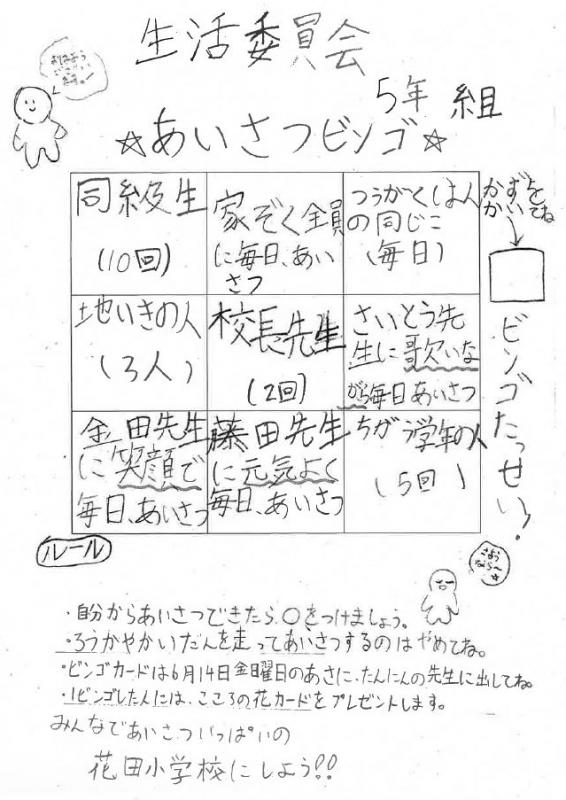 生活委員会
おはよう
ござい
ます。
5年 組
☆あいさつビンゴ☆
同級生
(10回)
家ぞく全員
に毎日、あい
さつ
つうがくはん
の同じこ
(毎日)
かずを
かいてね
地いきの人
(3人)
校長先生
(2回)
さいとう先
生に歌いな
がら毎日あいさつ
ビンゴたっせい!
金田先生
に笑顔で
毎日、あいさつ
藤田先生
に元気よく
毎日、あいさつ
ちがう学年の人
(5回)
ルール
さよう
なら〜
・自分からあいさつできたら、○をつけましょう。
・ろうかやかいだんを走ってあいさつするのはやめてね。
・ビンゴカードは6月14日金曜日のあさに、たんにんの先生に出してね。
・1ビンゴした人には、こころの花カードをプレゼントします。
みんなであいさついっぱいの
花田小学校にしよう!!